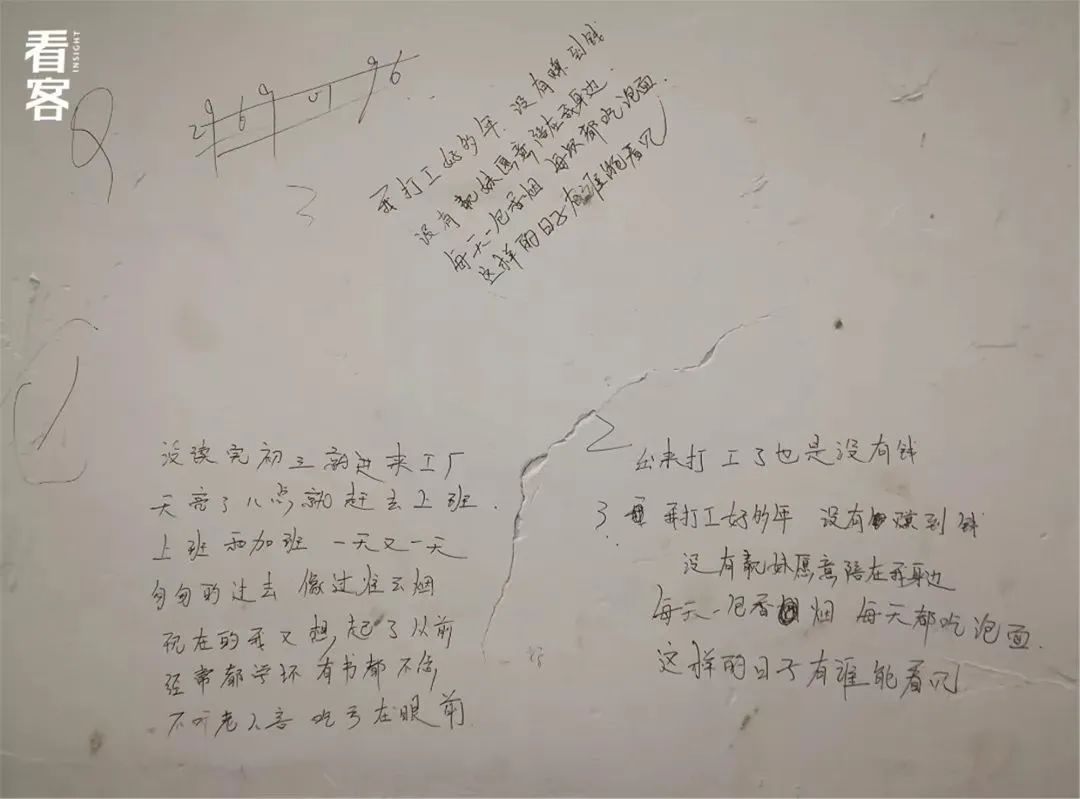 看客
INSIGHT
296901 96
我打工好多年 没有赚到钱
没有靓妹愿意陪在我身边
每天一包香烟 每次都吃泡面
这样的日子有谁能看见
没读完初三就进来工厂
天亮了八点就赶去上班.
上班和加班 一天又一天
匆匆的过去 像过往云烟
现在的我又想起了从前
经常都学坏有书都不信
不听老人言 吃亏在眼前.
2 出来打工了也是没有钱
3 我打工好多年 没有赚到钱
没有靓妹愿意陪在我身边
每天一包香烟 每天都吃泡面.
这样的日子有谁能看见